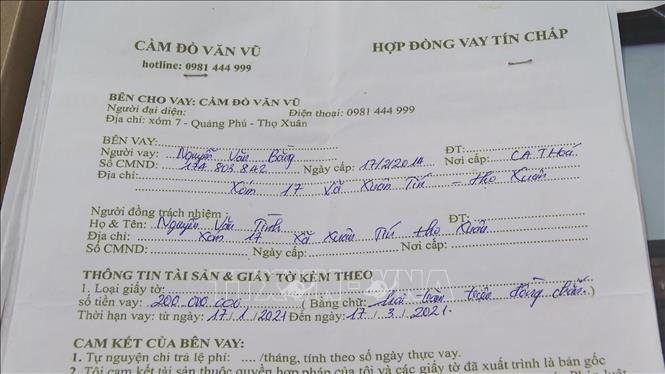 CẦM ĐỒ VĂN VŨ
hotline: 0981 444 999
HỢP ĐỒNG VAY TÍN CHẤP
BÊN CHO VAY: CẦM ĐỒ VĂN VŨ
Người đại diện: Điện thoại: 0981 444 999
Địa chỉ: xóm 7 - Quảng Phú - Thọ Xuân
BÊN VAY:
Người vay: Nguyễn Văn Bằng ĐT:
Số CMND: 174 803 842 Ngày cấp: 17/2/2014 Nơi cấp: CA T Hoá
Địa chỉ:
Xóm 17 Xã Xuân Tín - Thọ Xuân
Người đồng trách nhiệm:
Họ & Tên: Nguyễn Văn Tình ĐT:
Địa chỉ: Xóm 17 Xã Xuân Tín Thọ Xuân
Số CMND: Ngày cấp: Nơi cấp:
THÔNG TIN TÀI SẢN & GIẤY TỜ KÈM THEO
1. Loại giấy tờ:
số tiền vay: 200.000.000 (Bằng chữ: Hai trăm triệu đồng chẵn.)
Thời hạn vay: từ ngày: 17/1/2021 Đến ngày: 17/3/2021.
CAM KẾT CỦA BÊN VAY:
1. Tự nguyện chi trả lệ phí: ..../tháng, tính theo số ngày thực vay.
2. Tôi cam kết tài sản thuộc quyền hợp pháp của tôi và các giấy tờ đã xuất trình là bản gốc